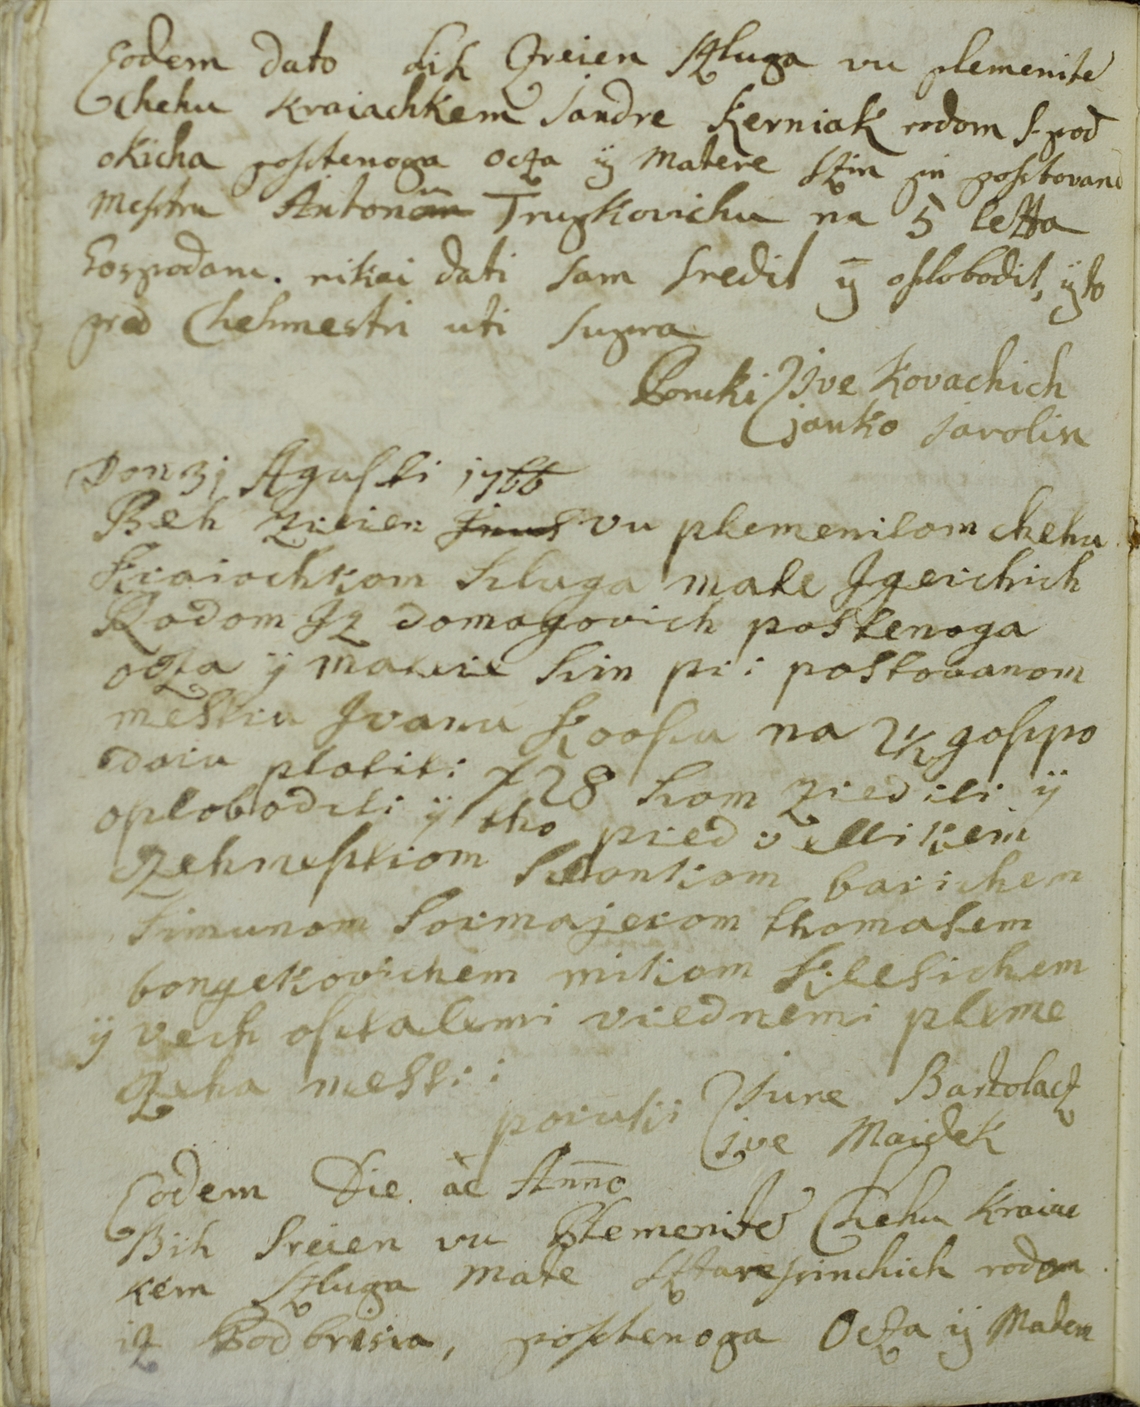 Eodem dato bih Zreien Szluga vu plemenite
Chehu Kraiachkem Jandre Kerniak rodom s-pod
okicha poshtenoga Ocza ÿ Matere Szin pri poshtovano
Mestru Anton Truzkovichu na 5 letta
Gospodaru. nikai dati sam sredil ÿ oslobodil, ÿ to
pred Chehmestri uti supra
Porucki Jive Kovachich
janko Jarolin
Don 31 Agusti 1766
Beh zreien vu plemenitom chehu
Kraiachkom sluga mate Jgerchich
Rodom Jz domagovich postenoga
ocza ÿ matere sin pri postovanom
mestru Jvanu na gospo
daru platiti f 28 sam zrediti ÿ
oplobodcti ÿ tho pred vellikem
zehmestrom barichem
simunom Sormajerom thomasem
bongekovichem mikom Klesichem
ÿ vech ostalemi vrednemi pleme
zeha mestri
porutki Jure Bartolacz
ive Majdek
Eodem Die ac Anno
Bih Sreien vu Plemenite Chehu Kraiac
kem Szluga Mate rodom
iz Podbresia, poshtenoga Ocza ÿ Matere